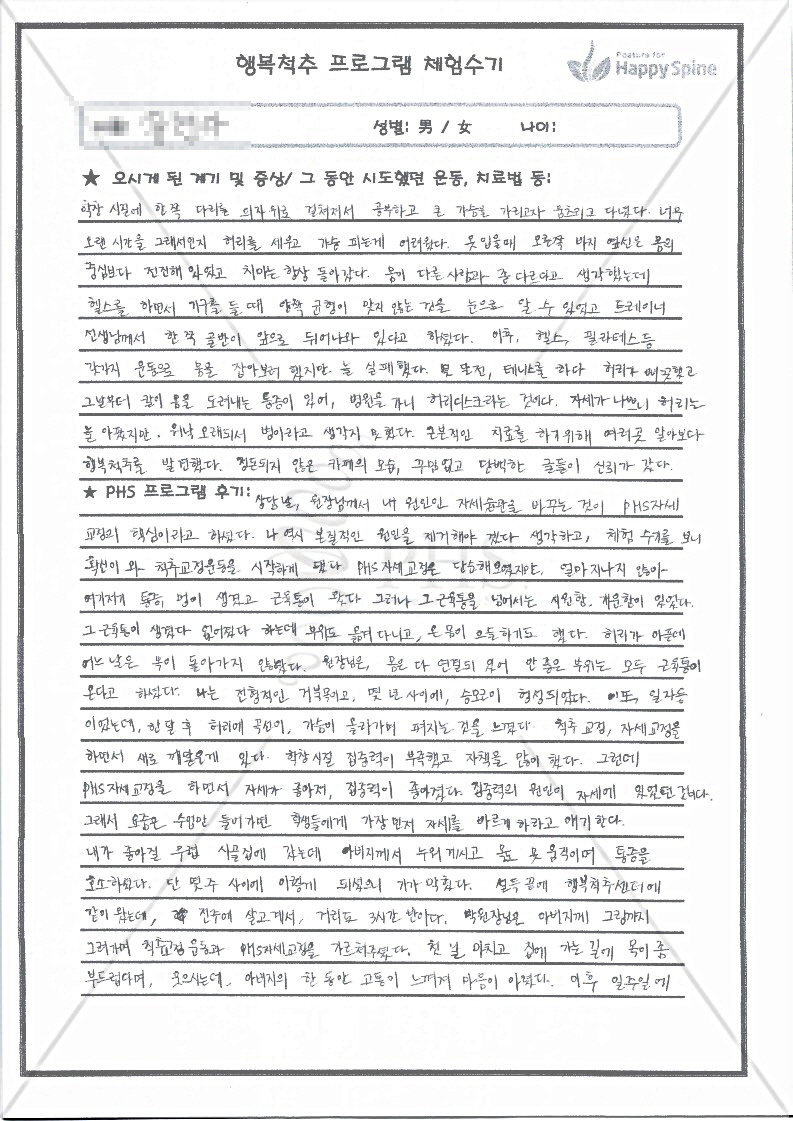 행복척추 프로그램 체험수기
Posture for
Happy Spine
성별: 男 / 女 나이:
★ 오시게 된 계기 및 증상/ 그 동안 시도했던 운동, 치료법 등:
학창 시절에 한 쪽 다리를 의자 위로 걸쳐져서 공부하고 큰 가슴을 가리고자 움츠리고 다녔다. 너무
오랜 시간을 그래서인지 허리를 세우고 가슴 피는게 어려웠다. 옷 입을때 오른쪽 바지 옆선은 몸의
중심보다 전진해 있었고 치마는 항상 돌아갔다. 몸이 다른 사람과 좀 다르다고 생각했는데
헬스를 하면서 기구를 들 때 양쪽 균형이 맞지 않는 것을 눈으로 알 수 있었고 트레이너
선생님께서 한 쪽 골반이 앞으로 튀어나와 있다고 하셨다. 이후, 헬스, 필라테스 등
각가지 운동으로 몸을 잡아보려 했지만 늘 실패했다. 몇 달전, 테니스를 하다 허리가 삐끗했고
그날부터 칼이 몸을 도려내는 통증이 있어, 병원을 가니 허리디스크라는 것이다. 자세가 나쁘니 허리는
늘 아팠지만. 워낙 오래되서 병이라고 생각지 못했다. 근본적인 치료를 하기위해 여러곳 알아보다
행복척추를 발견했다. 정돈되지 않은 카페의 모습, 꾸밈없고 담백한 글들이 신뢰가 갔다.
★ PHS 프로그램 후기: 상담날, 원장님께서 내 원인인 자세습관을 바꾸는 것이 PHS자세
교정의 핵심이라고 하셨다. 나 역시 본질적인 원인을 제거해야 겠다 생각하고, 체험 수기를 보니
확신이 와 척추교정운동을 시작하게 됐다 PHS 자세교정은 단순해보였지만, 얼마 지나지 않아
여기저기 통증, 멍이 생겼고 근육통이 왔다 그러나 그 근육통을 넘어서는 시원함, 개운함이 있었다.
그 근육통이 생겼다 없어졌다 하는데 부위도 옮겨 다니고, 온 몸이 으슬하기도 했다. 허리가 아픈데
어느 날은 목이 돌아가지 않았다. 원장님은, 몸은 다 연결되 있어 안 좋은 부위는 모두 근육통이
온다고 하셨다. 나는 전형적인 거북목이고, 몇 년 사이에, 승모근이 형성되었다. 이또, 일자등
이었는데, 한달 후 허리에 곡선이, 가슴이 올라가며 펴지는 것을 느꼈다. 척추 교정, 자세교정을
하면서 새로 깨달은게 있다. 학창시절 집중력이 부족했고 자책을 많이 했다. 그런데
PHS자세교정을 하면서 자세가 좋아져, 집중력이 좋아졌다. 집중력의 원인이 자세에 있었던 것이다.
그래서 요즘은 수업안 들어가면 학생들에게 가장 먼저 자세를 바르게 하라고 얘기한다.
내가 좋아질 무렵 시골집에 갔는데 아버지께서 누워 계시고 몸도 못 움직이며 통증을
호소하셨다. 단 몇 주 사이에 이렇게 되셨으니 기가 막혔다. 설득 끝에 행복척추센터에
같이 왔는데, 진주에 살고계셔, 거리도 3시간 반이다. 박원장님은 아버지께 그림까지
그려가며 척추교정 운동과 PHS자세교정을 가르쳐주셨다. 첫 날 마치고 집에 가는 길에 목이 좀
부드럽다며, 웃으시는데, 아버지의 한 동안 고통이 느껴져 마음이 아렸다. 이후 일주일에
PHS